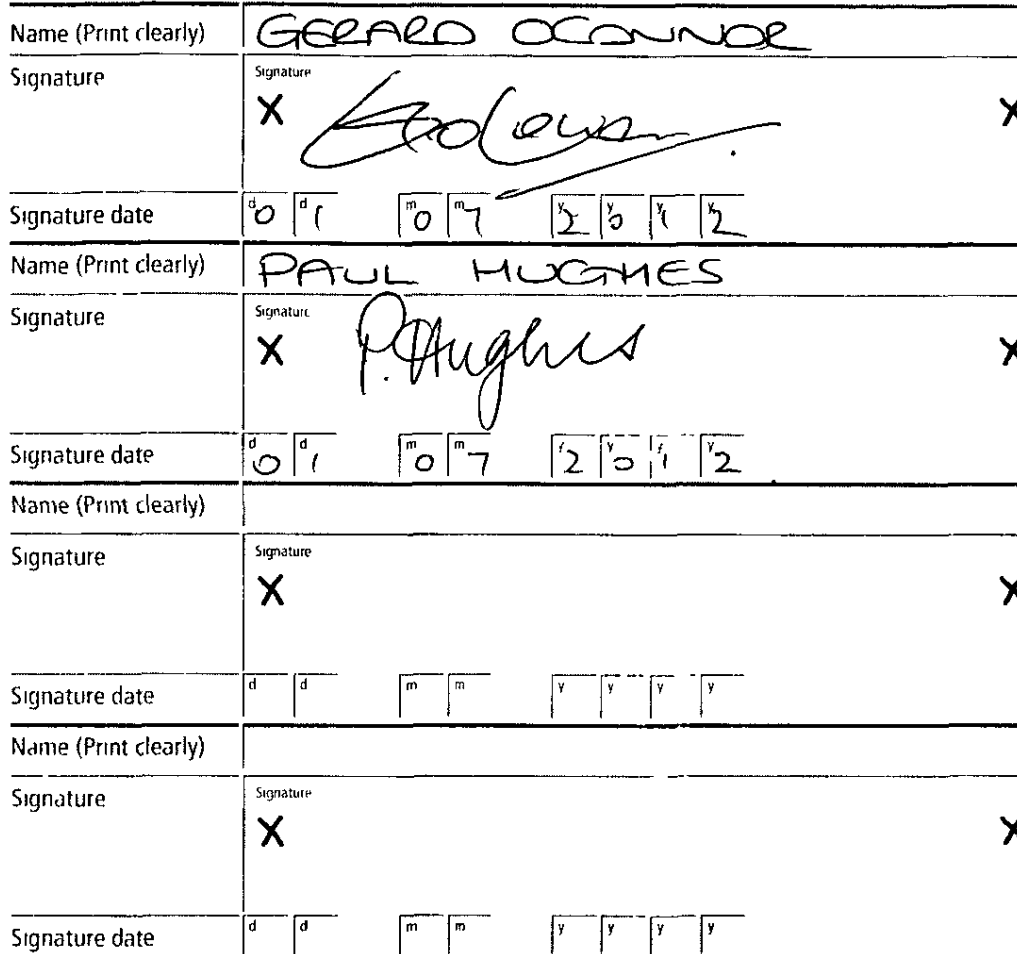 Name (Print clearly) GERARD OCONNOR
Signature Signature
X X
Signature date d0 d1 m0 m7 y2 y0 y1 y2
Name (Print clearly) PAUL HUGHES
Signature Signature
X P. Hughes X
Signature date d0 d1 m0 m7 y2 y0 y1 y2
Name (Print clearly)
Signature Signature
X X
Signature date d d m m y y y y
Name (Print clearly)
Signature Signature
X X
Signature date d d m m y y y y